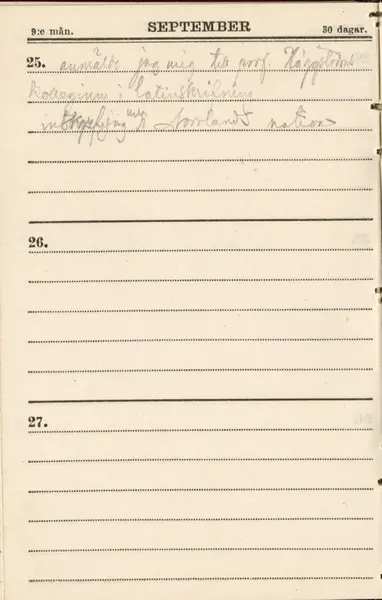 9:e mån. SEPTEMBER 30 dagar.
25. anmälde jag mig till prof. Häggströms
kollegium i latinskrifning
jag mig Norrlands nation
26.
27.